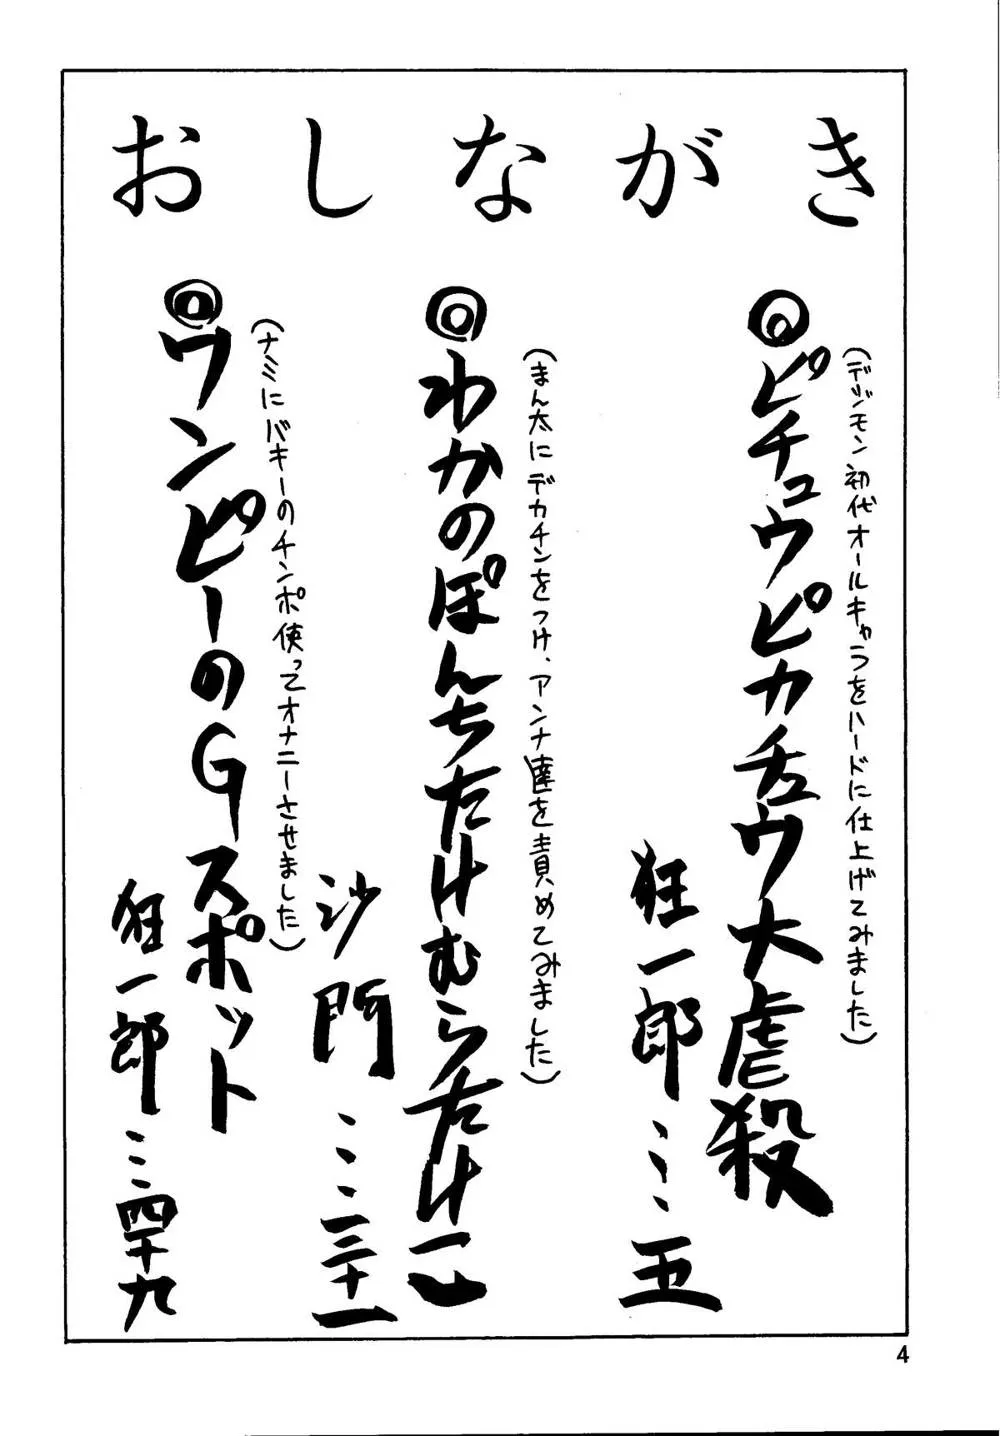 おしながき
◎ピチュウピカチュウ大虐殺
(デジモン初代オールキャラをハードに仕上げてみました)
狂一郎……五
◎わかのぽんちたけむらたけ一
(まん太にデカチンをつけ、アンナ達を責めてみました)
沙門……三十一
◎ワンピーのGスポット
(ナミにバギーのチンポ使ってオナニーさせました)
狂一郎……四十九
4